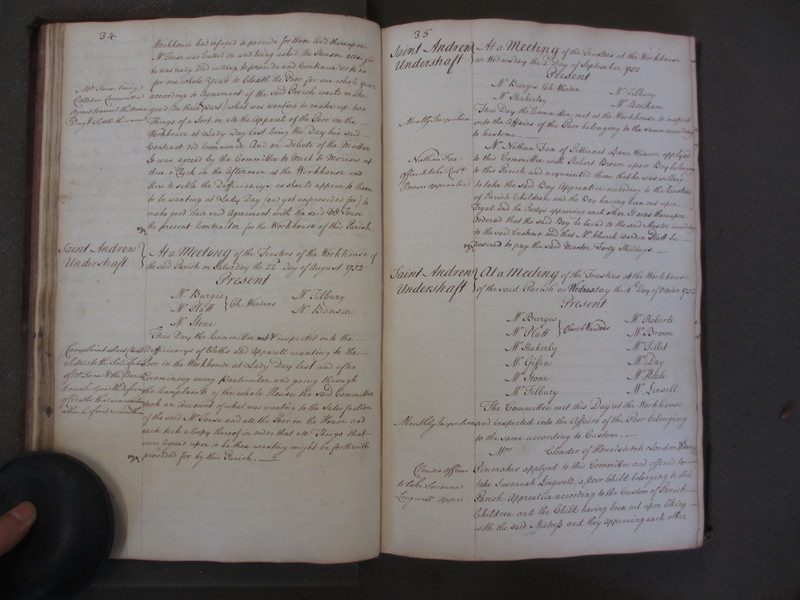 34
Workhouse had refused to provide for them And thereupon
Mr. Towse was called in and being asked the Reason
he was ready and willing to provide and Continue so to do
for one whole Year to Cloath the Poor for one whole Year
according to agreement if the said Parish would make
good for them what was wanting to make up two
Things of a Sort in all the Apparel of the Poor in the
Workhouse at Lady Day last being the Day his said
Contract did Commence And on Debate of the Matter
It was agreed by the Committee to Meet to Morrow at
three o'Clock in the Afternoon at the Workhouse and
there to settle the Difficiencys as shall appear to them
to be wanting at Lady Day (and yet unprovided for) to
make good their said Agreement with the said Mr. Towse
the present Contractor for the Workhouse of this Parish
Saint Andrew
Undershaft
At a Meeting of the Trustees of the Workhouse of
the said Parish on Saturday the 22d. Day of August 1752
Present
Mr. Burgis
Mr. Platt
Ch. Wardens
Mr. Stone
Mr. Tilbury
Mr. Banson
This Day the Committee met & inspected into the
Difficiencys of Cloths and Apparell wanting to the
Poor in the Workhouse at Lady Day last and after
Examining every Particular and going through
the Complaints of the whole House the said Committee
took an Account of what was wanting to the Satisfaction
of the said Mr. Towse and all the Poor in the House and
each took a Copy thereof in order that all Things that
were agreed upon to be then wanting might be forthwith
provided for by this Parish.
35
Saint Andrew
Undershaft
At a Meeting of the Trustees at the Workhouse
on Wednesday the 2d. Day of September 1752
Present
Mr. Burgis Ch. Warden
Mr. Shakerley
Mr. Tilbury
Mr. Bentham
Monthly Inspection
This Day the Committee met at the Workhouse to inspect
into the Affairs of the Poor belonging to the same according
to Custom.
Nathan Fen
offers to take Robt.
Brown apprentice
Mr. Nathan Fen of Petticoat Lane Weaver applyed
to this Committee with Robert Brown a poor Boy belonging
to this Parish and acquainted them that he was willing
to take the said Boy Apprentice according to the Custom
of Parish Children and the Boy having been out upon
Tryal and the Partys approving each other It was thereupon
Ordered that the said Boy be bound to the said Master according
to the said Custom and that Mr. Church warden Platt be
desired to pay the said Master Forty Shillings.
Saint Andrew
Undershaft
At a Meeting of the Trustees at the Workhouse
of the said Parish on Wednesday the 4th. Day of October 1752
Present
Mr. Burgis
Mr. Platt
Church Wardens
Mr. Shakerly
Mr. Giffin
Mr. Stone
Mr. Tilbury
Mr. Roberts
Mr. Brown
Mr. Tillet
Mr. Day
Mr. Hale
Mr. Linsell
Monthly Inspection
The Committee met this Day at the Workhouse
and inspected into the Affairs of the Poor belonging
to the same according to Custom.
Mrs. Clouder of Houndsditch London
Clouder offers
to take Susanna
Pinmaker applyed to this Committee and offered to
take Susannah Lingwood, a poor Child belonging to this
Parish Apprentice according to the Custom of Parish
Children and the Child having been out upon liking
with the said Mistress and they approving each other